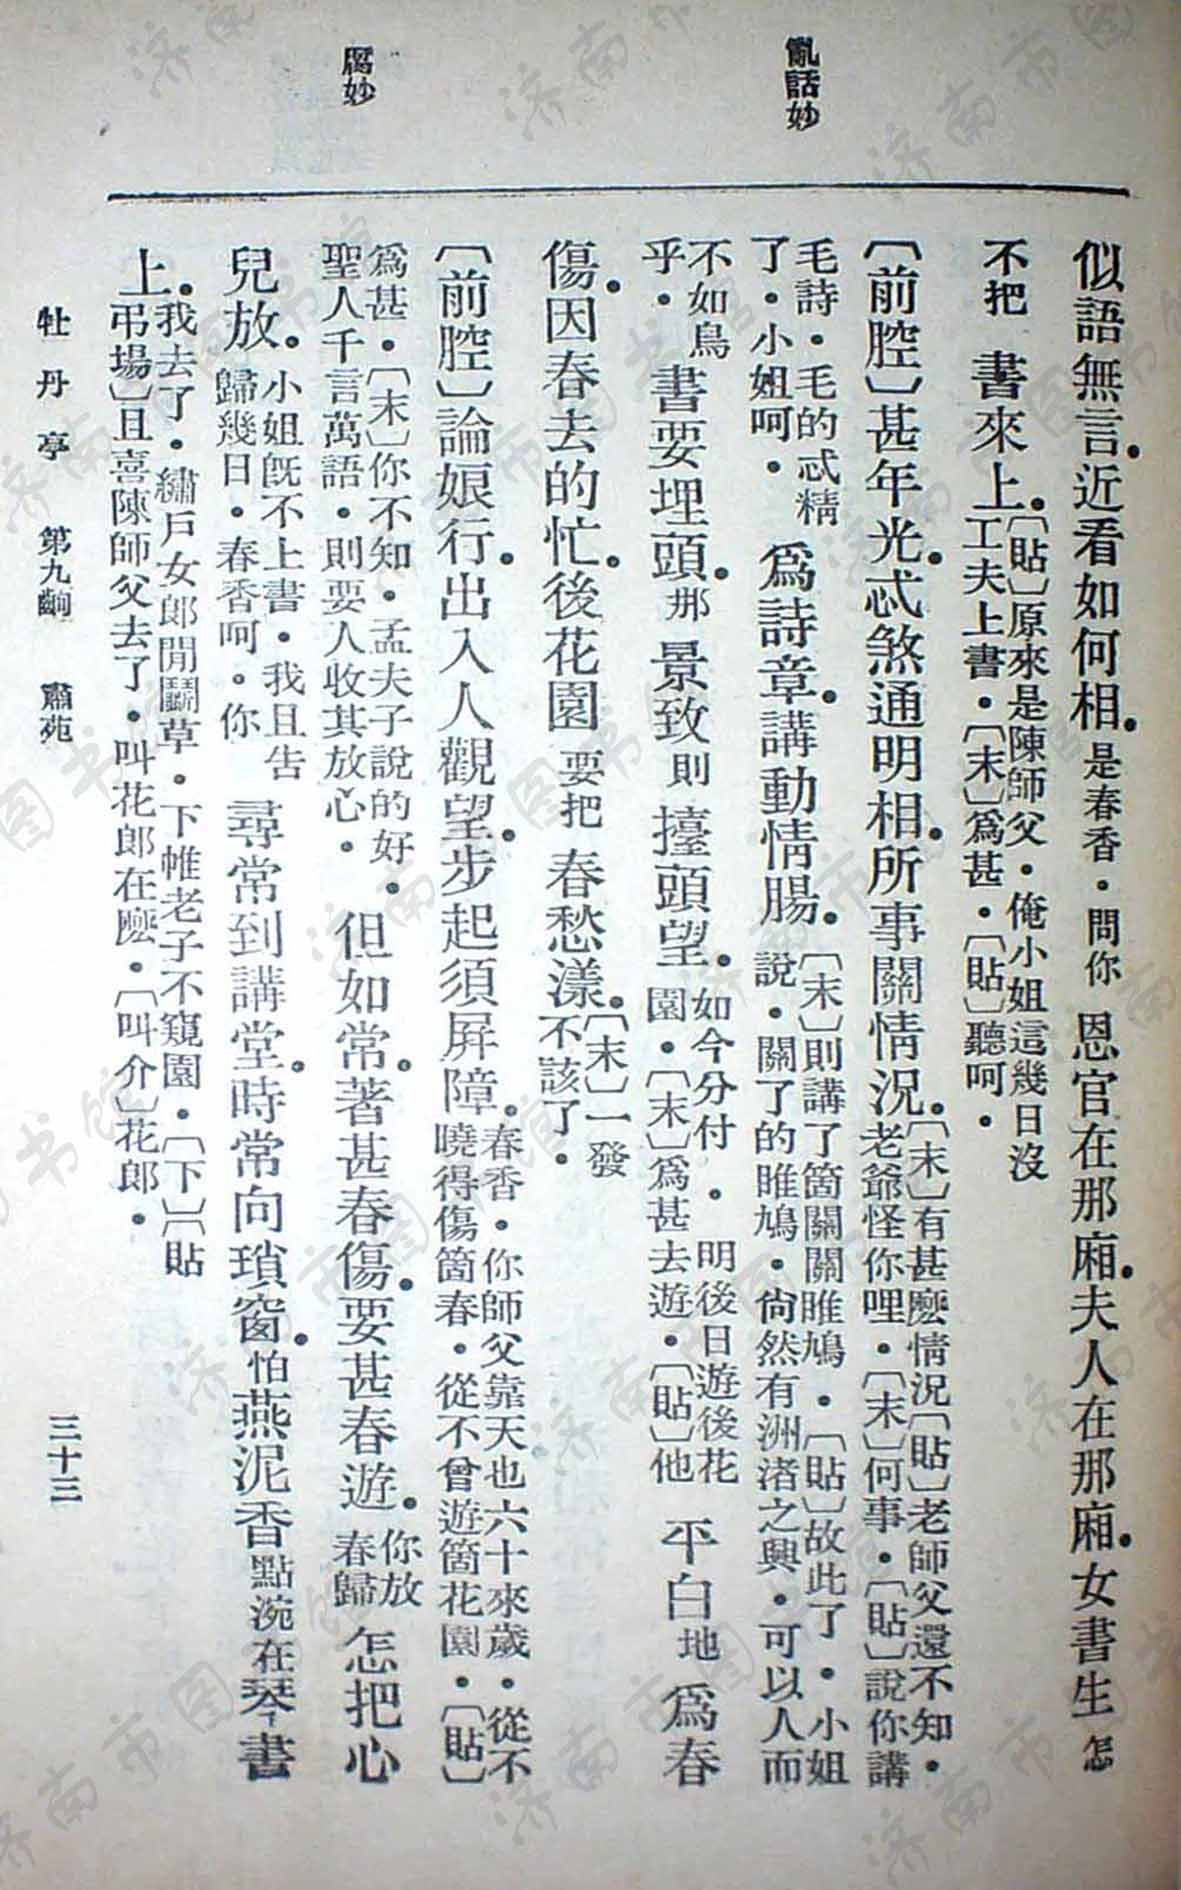 亂話妙
腐妙
似語無言。近看如何相。是春香・問你 恩官在那廂。夫人在那廂。女書生 怎
不把 書來上。〔貼〕原來是陳師父・俺小姐這幾日沒工夫上書・〔末〕爲甚・〔貼〕聽呵・
〔前腔〕甚年光。忒煞通明相。所事關情況。〔末〕有甚麼情況〔貼〕老師父還不知・老爺怪你哩・〔末〕何事・〔貼〕說你講
毛詩・毛的忒精了・小姐呵・ 爲詩章。講動情腸。〔末〕則講了箇關關雎鳩・〔貼〕故此了・小姐說・關了的雎鳩・尙然有洲渚之興・可以人而
不如鳥乎・ 書要埋頭。那 景致 則 擡頭望。如今分付・明後日遊後花園・〔末〕爲甚去遊・〔貼〕他 平白地 爲春
傷。因春去的忙。後花園 要把 春愁漾。〔末〕一發不該了・
〔前腔〕論娘行。出入人觀望。步起須屛障。春香・你師父靠天也六十來歲・從不曉得傷箇春・從不曾遊箇花園・〔貼〕
爲甚・〔末〕你不知・孟夫子說的好・聖人千言萬語・則要人收其放心・ 但如常。著甚春傷。要甚春遊。你放春歸 怎把心
兒放。小姐旣不上書・我且告歸幾日・春香呵・你 尋常到講堂。時常向瑣窗。怕燕泥香點涴在琴書
上。我去了・繡戶女郎閒鬬草・下帷老子不窺園・〔下〕〔貼弔場〕且喜陳師父去了・叫花郎在麼・〔叫介〕花郎・
牡丹亭 第九齣 肅苑 三十三
济南市图书馆